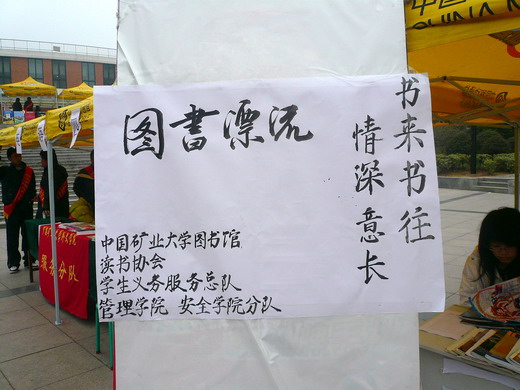 图書漂流
书来书往
情深意长
中国矿业大学图书馆
读书协会
学生义务服务总队
管理学院 安全学院分队
服务分队
中国
CHINA M